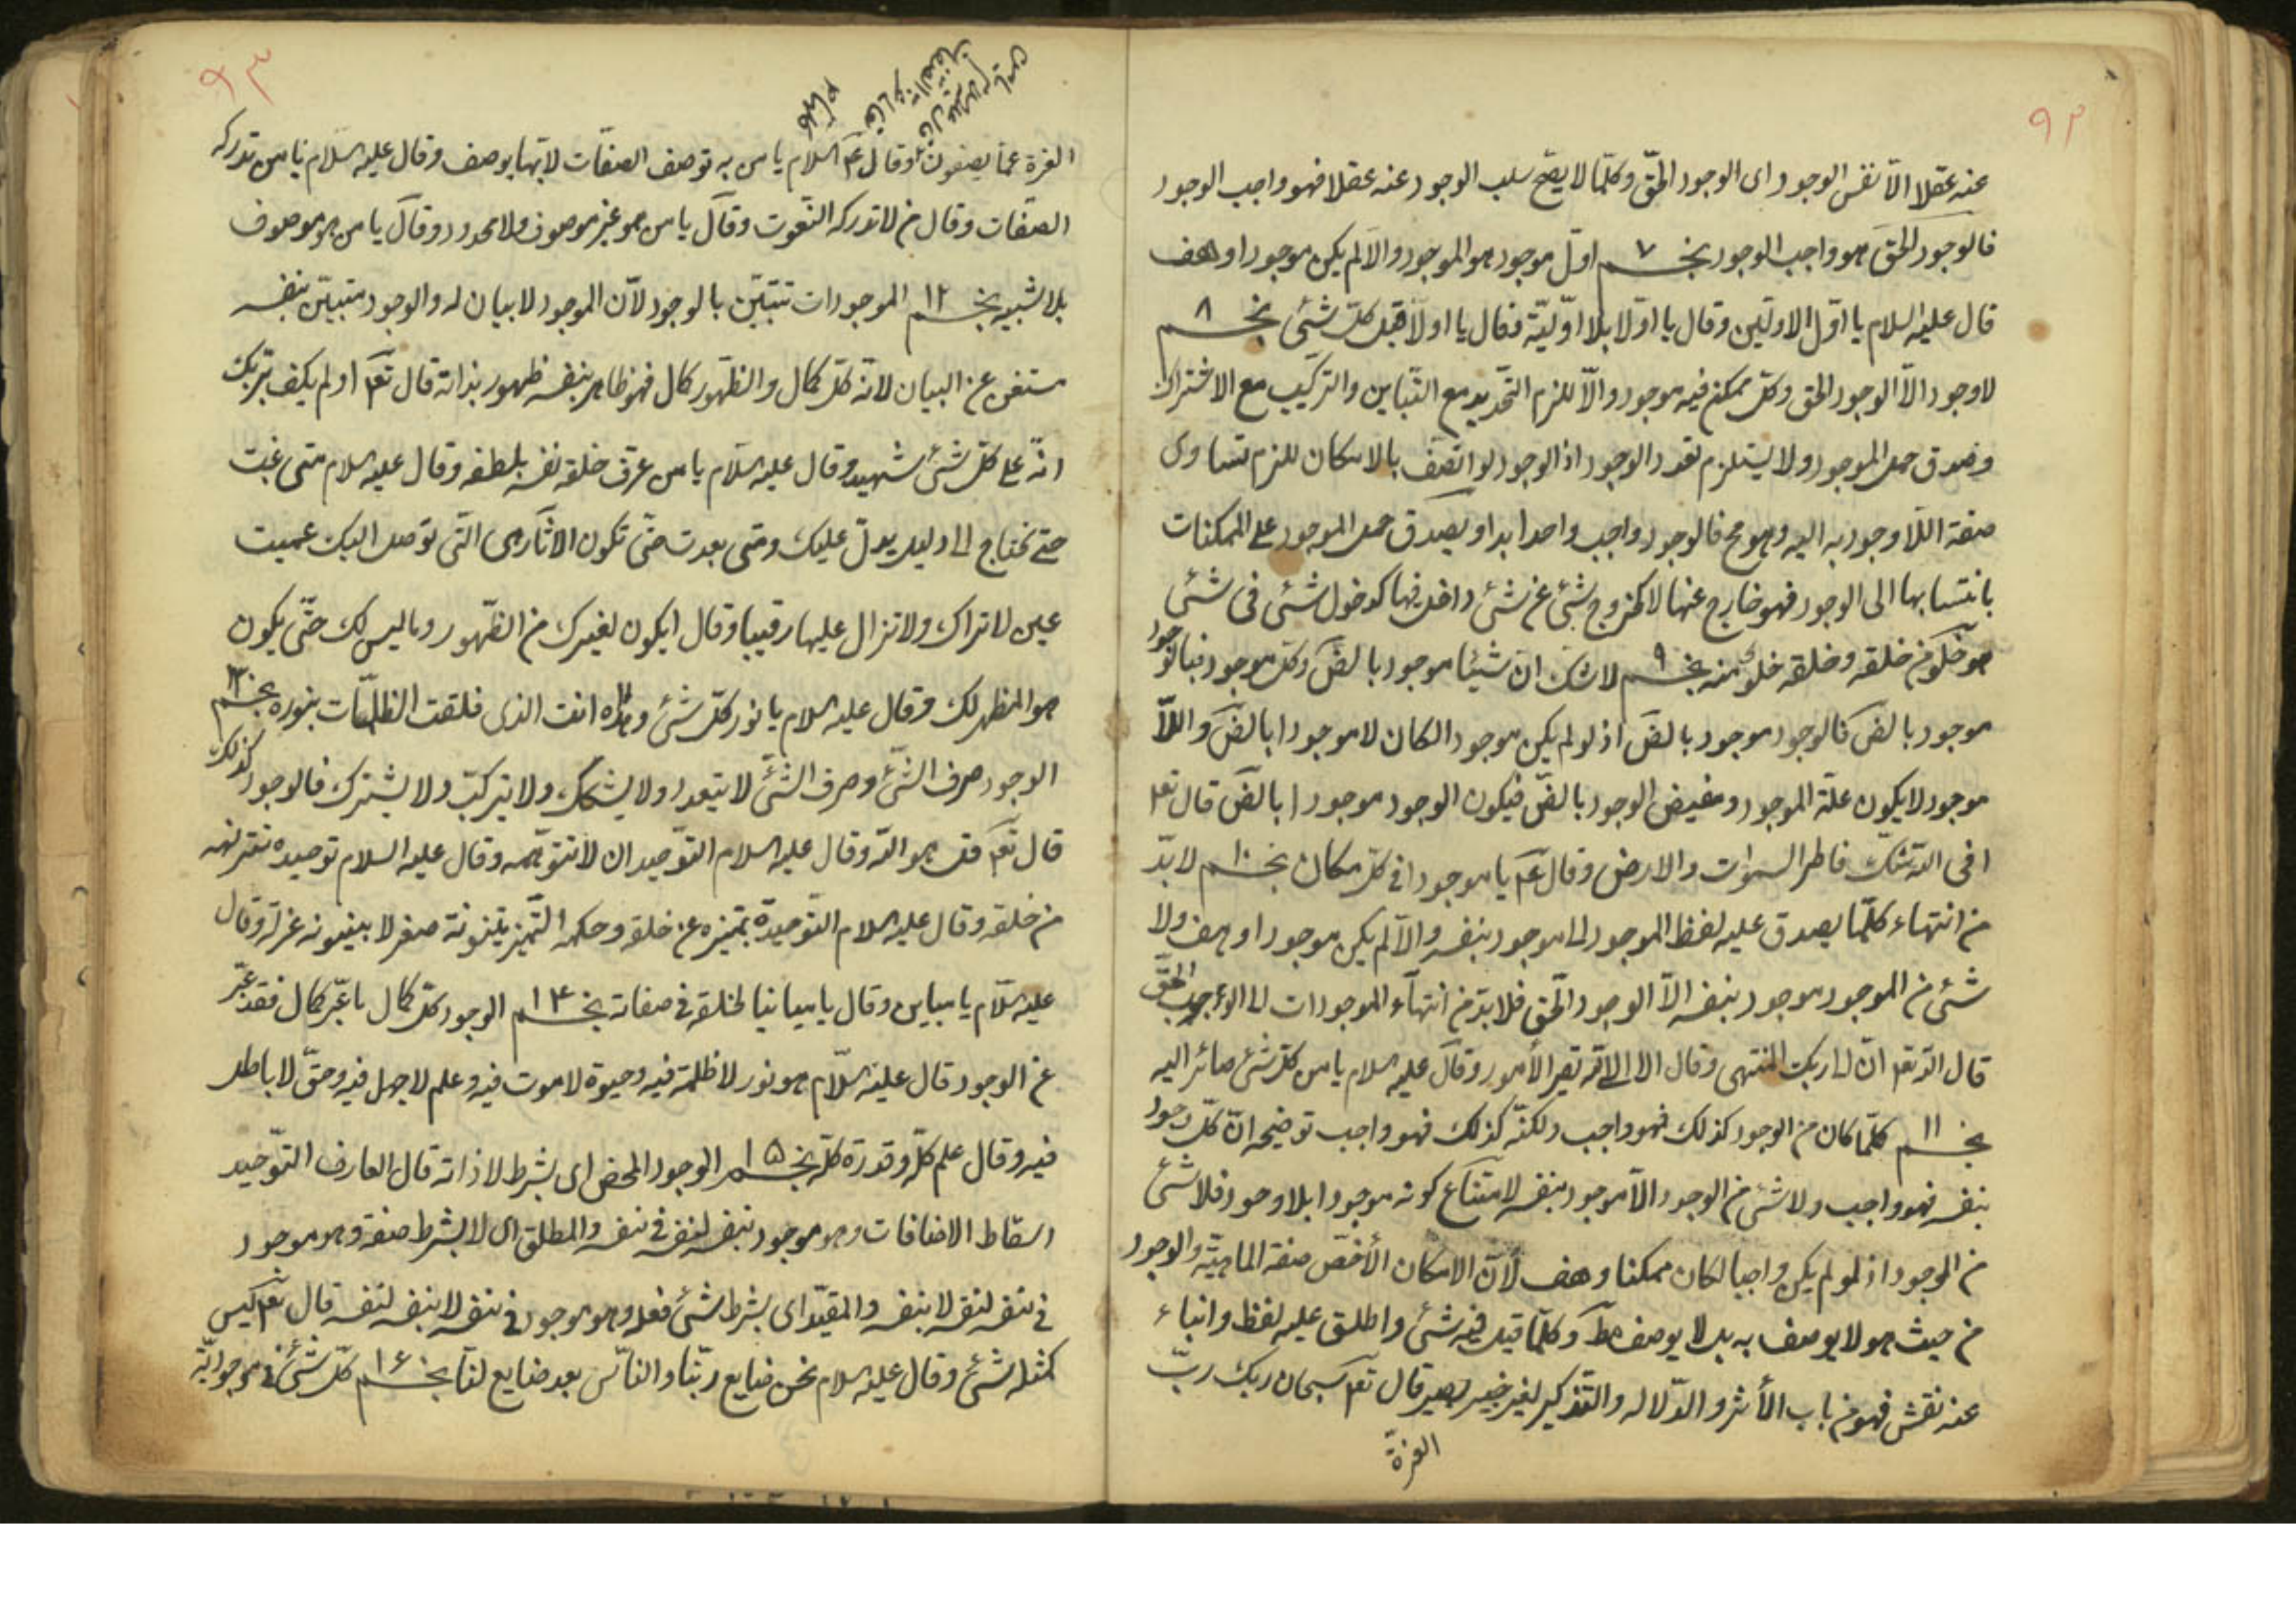 ٩٢
عنه عقلا الا نفس الوجود اى الوجود الحقّ وكلّما لا يصحّ سلب الوجود عنه عقلا فهو واجب الوجود
فالوجود الحقّ هو واجب الوجود نجم ٧ اوّل موجود هو الموجود والّا لم يكن موجودا وهف
قال عليه السلام يا اوّل الاوّلين وقال يا اوّلا بلا اوّليّة فقال يا اولا قبل كلّ شئ نجم ٨
لا وجود الّا الوجود الحق وكلّ ممكن فيه موجود والّا للزم التحديد مع التّباين والتركيب مع الاشتراك
وصدق حمل الموجود ولا يستلزم تعدد الوجود اذ الوجود لو اتّصف بالامكان للزم تساوى
صفة اللّا وجود به اليه وهو مح فالوجود واجب واحد ابدا ويصدق حمل الموجود على الممكنات
بانتسابها الى الوجود فهو خارج عنها لا كخروج شئ عن شئ داخل فيها كدخول شئ فى شئ
هو خلو من خلقه وخلقه خلو منه نجم ٩ لا شكّ انّ شيئا موجود بالضّ وكلّ موجود فبالوجود
موجود بالضّ فالوجود موجود بالضّ اذ لو لم يكن موجود الكان لا موجودا بالضّ واللّا
موجود لا يكون علّة الموجود ومفيض الوجود بالضّ فيكون الوجود موجودا بالضّ قال تعم
افى اللّه شكّ فاطر السموات والارض وقال عم يا موجودا فى كلّ مكان نجم ١٠ لا بدّ
من انتهاء كلّما يصدق عليه لفظ الموجود الى موجود بنفسه والّا لم يكن موجودا وهف ولا
شئ من الموجود موجود بنفسه الّا الوجود الحقّ فلا بدّ من انتهاء الموجودات الى الوجود الحقّ
قال اللّه تعم انّ الى ربّك المنتهى وقال الا الى اللّه تصير الأمور وقال عليه السلام يا من كلّ شئ صائر اليه
نجم ١١ كلّما كان من الوجود كذلك فهو واجب ولكنّه كذلك فهو واجب توضيحه انّ كلّ وجود
بنفسه فهو واجب ولا شئ من الوجود الّا موجود بنفسه لامتناع كونه موجودا بلا وجود فلا شئ
من الوجود اذ لو لم يكن واجبا لكان ممكنا وهف لأنّ الامكان الأخصّ صفة الماهيّة والوجود
من حيث هو لا يوصف به بل لا يوصف مط وكلّما قيل فيه شئ واطلق عليه لفظ وانباء
عنه نقش فهو من باب الأثر والدّلاله والتذكير لغير خبير بصير قال تعم سبحان ربك ربّ
العزة
٩٣
العزة عمّا يصفون وقال عم السلام يا من به توصف الصفات لا بها يوصف وقال عليه السلام يا من تدركه
الصفات وقال من لا تدركه النّعوت وقال يا من هو غير موصوف ولا محدود وقال يا من هو موصوف
بلا شبيه نجم ١٢ الموجودات تتبيّن بالوجود لأنّ الموجود لا بيان له والوجود متبيّن بنفسه
مستغن عن البيان لانه كلّ كمال والظهور كمال فهو ظاهر بنفسه ظهور بذاته قال تعم اولم يكف بربّك
انّه على كلّ شئ شهيد وقال عليه السلام يا من عرّف خلقه نفسه بلطفه وقال عليه السلام متى غبت
حتى تحتاج الى دليل يدلّ عليك ومتى بعدت حتّى تكون الاثار هى التّى توصل اليك عميت
عين لا تراك ولا تزال عليها رقيبا وقال ايكون لغيرك من الظّهور وما ليس لك حتّى يكون
هو المظهر لك وقال عليه السلام يا نور كلّ شئ وهداه انت الذى فلقت الظلمات بنوره نجم ١٣
الوجود صرف الشّئ وصرف الشّئ لا يتعدد ولا يشكّك ولا يتركّب ولا يشترك فالوجود كذلك
قال تعم قل هو اللّه وقال عليه السلام التّوحيد ان لا تتوهّمه وقال عليه السلام توحيده تمييزه
من خلقه وقال عليه السلام التّوحيده تميّزه عن خلقه وحكم التّميز بينونة صفة لا بينونة عزلة وقال
عليه السّلام يا مباين وقال يا مباينا لخلقه فى صفاته نجم ١٤ الوجود كلّ كمال ما غيّر كمال فقد غيّر
عن الوجود قال عليه السّلام هو نور لا ظلمة فيه وحيوة لا موت فيه وعلم لا جهل فيه وحقّ لا باطل
فيه وقال علم كلّه وقدرة كلّه نجم ١٥ الوجود المحض اى بشرط لا ذاته قال العارف التّوحيد
اسقاط الاضافات وهو موجود بنفسه لنفسه فى نفسه والمطلق اى لا بشرط صفة وهو موجود
فى نفسه لنفسه لا بنفسه والمقيّد اى بشرط شئ فعله وهو موجود فى نفسه لا بنفسه لنفسه قال تعم ليس
كمثله شئ وقال عليه السلام نحن صنايع ربّنا والنّاس بعد صنايع لنا نجم ١٦ كلّ شئ فى موجوديّة